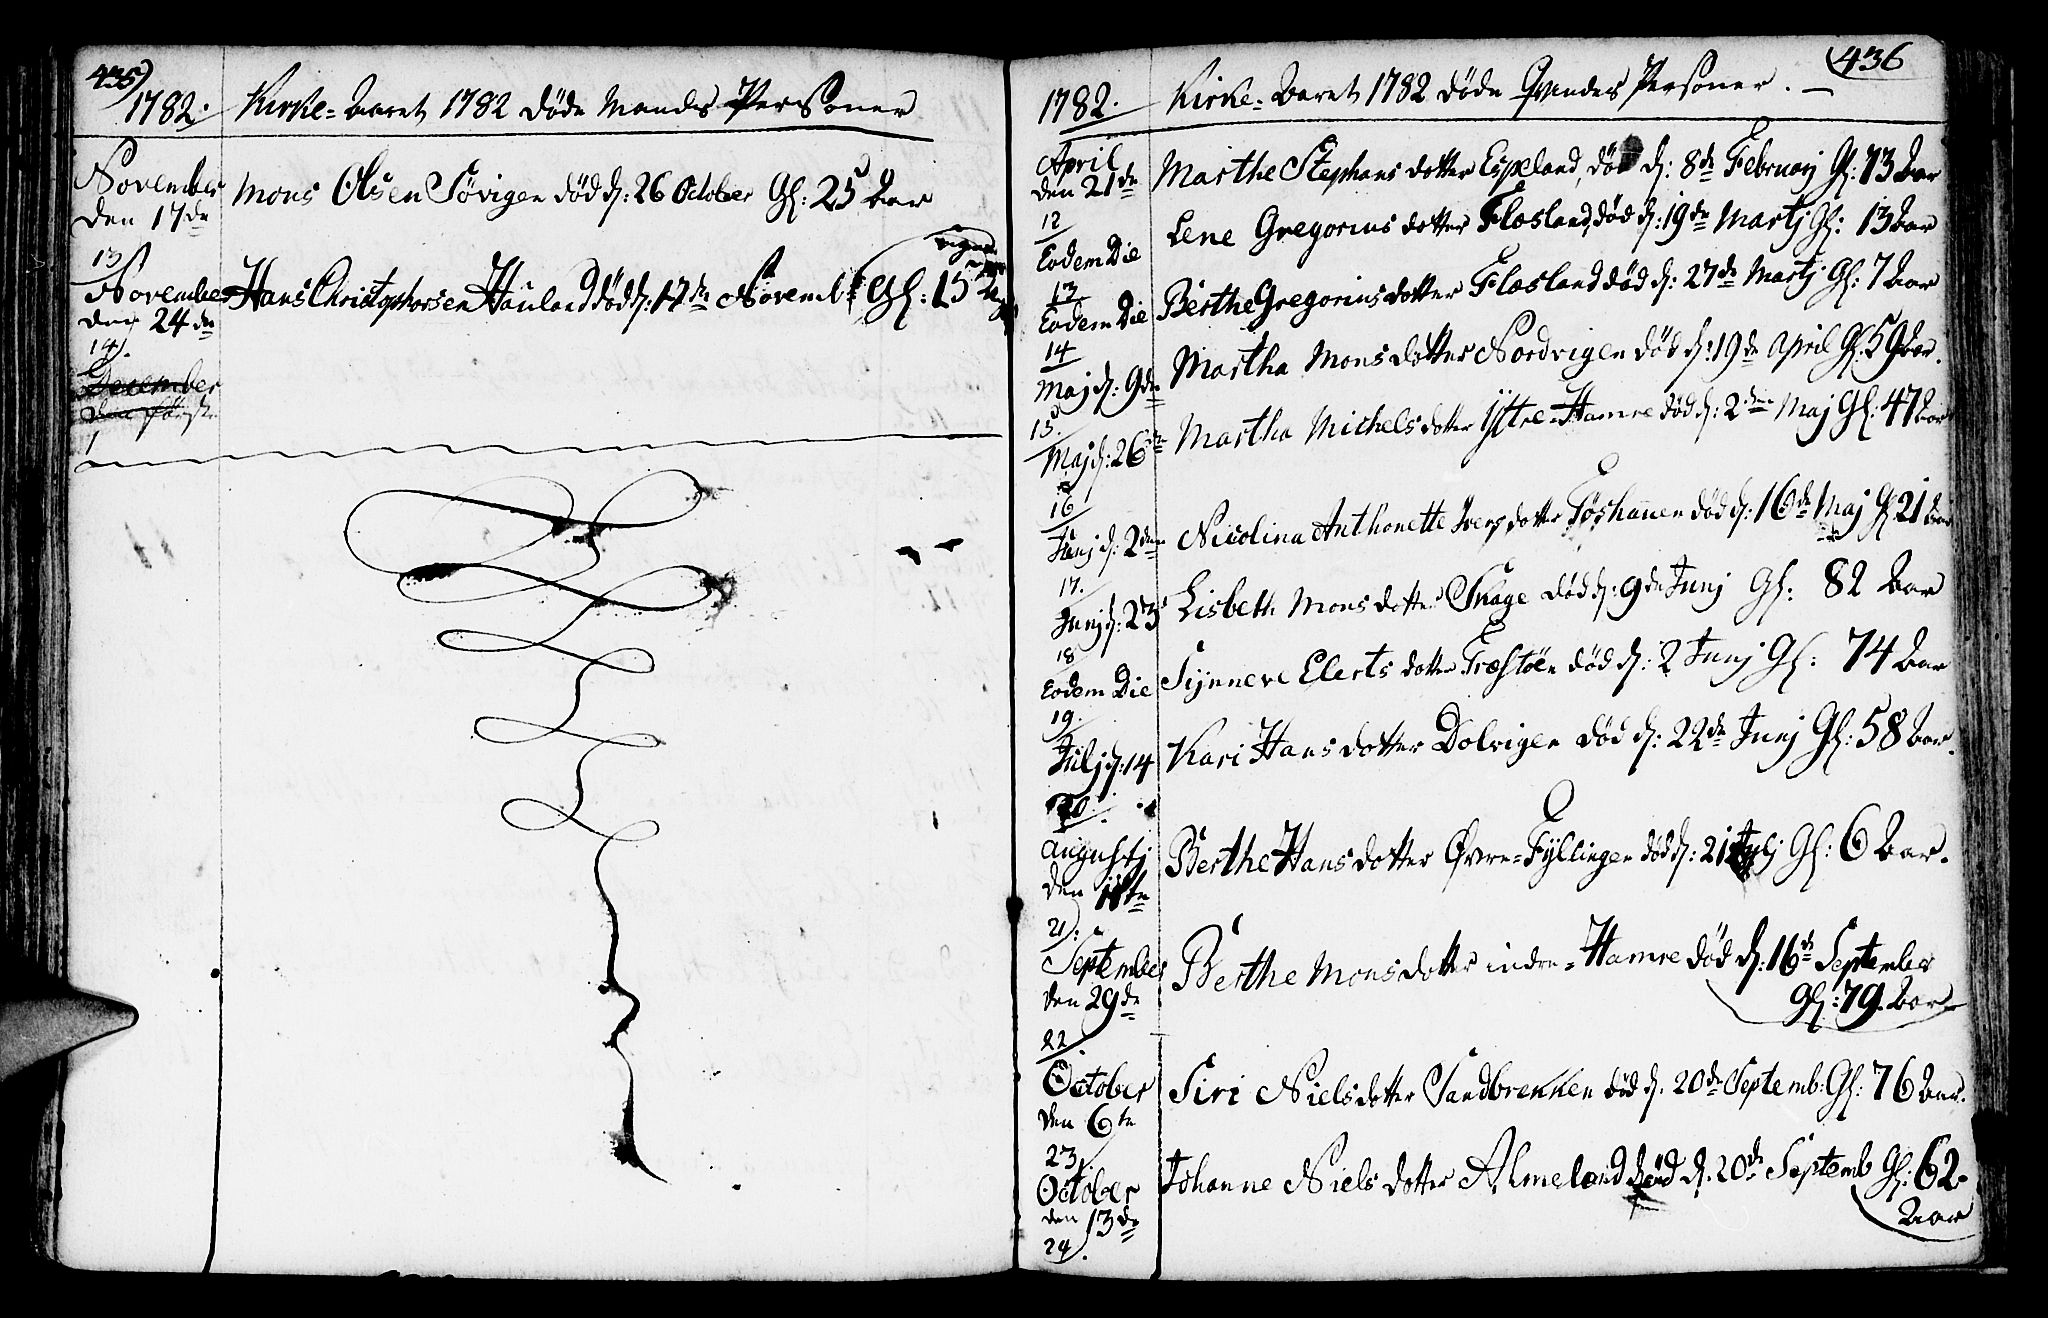 435)
1782. Kirke-Aaret 1782 døde Mands Personer
November
den 17de
Mons Olsen Søvigen død d: 26 October Gl: 25 Aar
13
November
den 24de
Hans Christophersen Hauland død d: 17de Novemb: Gl: 15
14.
December
1
(436
1782. Kirke-Aaret 1782 døde Qvindes Personer. —
April
den 21de
Marthe Stephans dotter Espeland, død d: 8de Februarj Gl: 73 Aar
12
Eodem Die
Lene Gregorius dotter Flæsland, død d: 19de Martj Gl: 13 Aar
13
Eodem Die
Berthe Gregorius dotter Flæsland død d: 27de Martj Gl: 7 Aar
14
Maj d: 9de
Martha Mons dotter Nordvigen død d: 19de April Gl: 59 Aar.
15.
Maj d: 26de
Martha Michels dotter Yttre-Hamre død d: 2den Maj Gl: 47 Aar
16
Junj d: 2den
Nicolina Anthonette Ivers dotter Føshauen død d: 16de Maj Gl: 21 Aar
17.
Junj d: 23
Lisbeth Mons dotter Skage død d: 9de Junj Gl: 82 Aar
18
Eodem Die
Synneve Elerts dotter Træstøen død d: 2 Junj Gl: 74 Aar
19.
Julj d: 14
Kari Hans dotter Dolvigen død d: 22de Junj Gl: 58 Aar.
20.
Augustj
den 11te
Berthe Hans dotter Øvre-Fyllingen død d: 21 Julj Gl: 6 Aar.
21.
September
den 29de
Berthe Mons dotter indre-Hamre død d: 16de September
Gl: 79. Aar
22.
October
den 6te
Siri Niels dotter Sandbrekken død d. 20de Septemb: Gl: 76 Aar.
23.
October
den 13de
Johanne Niels dotter Almeland død d. 20de Septemb Gl: 62
Aar
24.